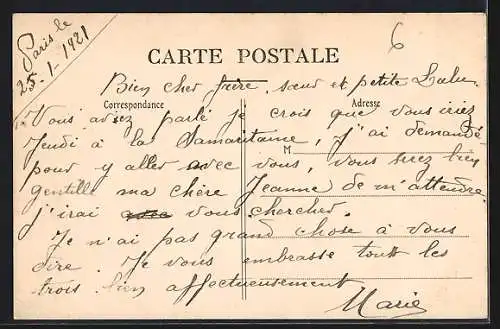 Paris le
25-1-1921
6
CARTE POSTALE
Bien cher frère, sœur et petite Lulu
Correspondance
Adresse
Vous aviez parlé je crois que vous iriez
Jeudi à la Samaritaine, j'ai demandé
M
pour y aller avec vous, vous serez bien
gentille ma chère Jeanne de m'attendre.
j'irai avec vous chercher.
Je n'ai pas grand chose à vous
dire. Je vous embrasse tout les
trois bien affectueusement
Marie